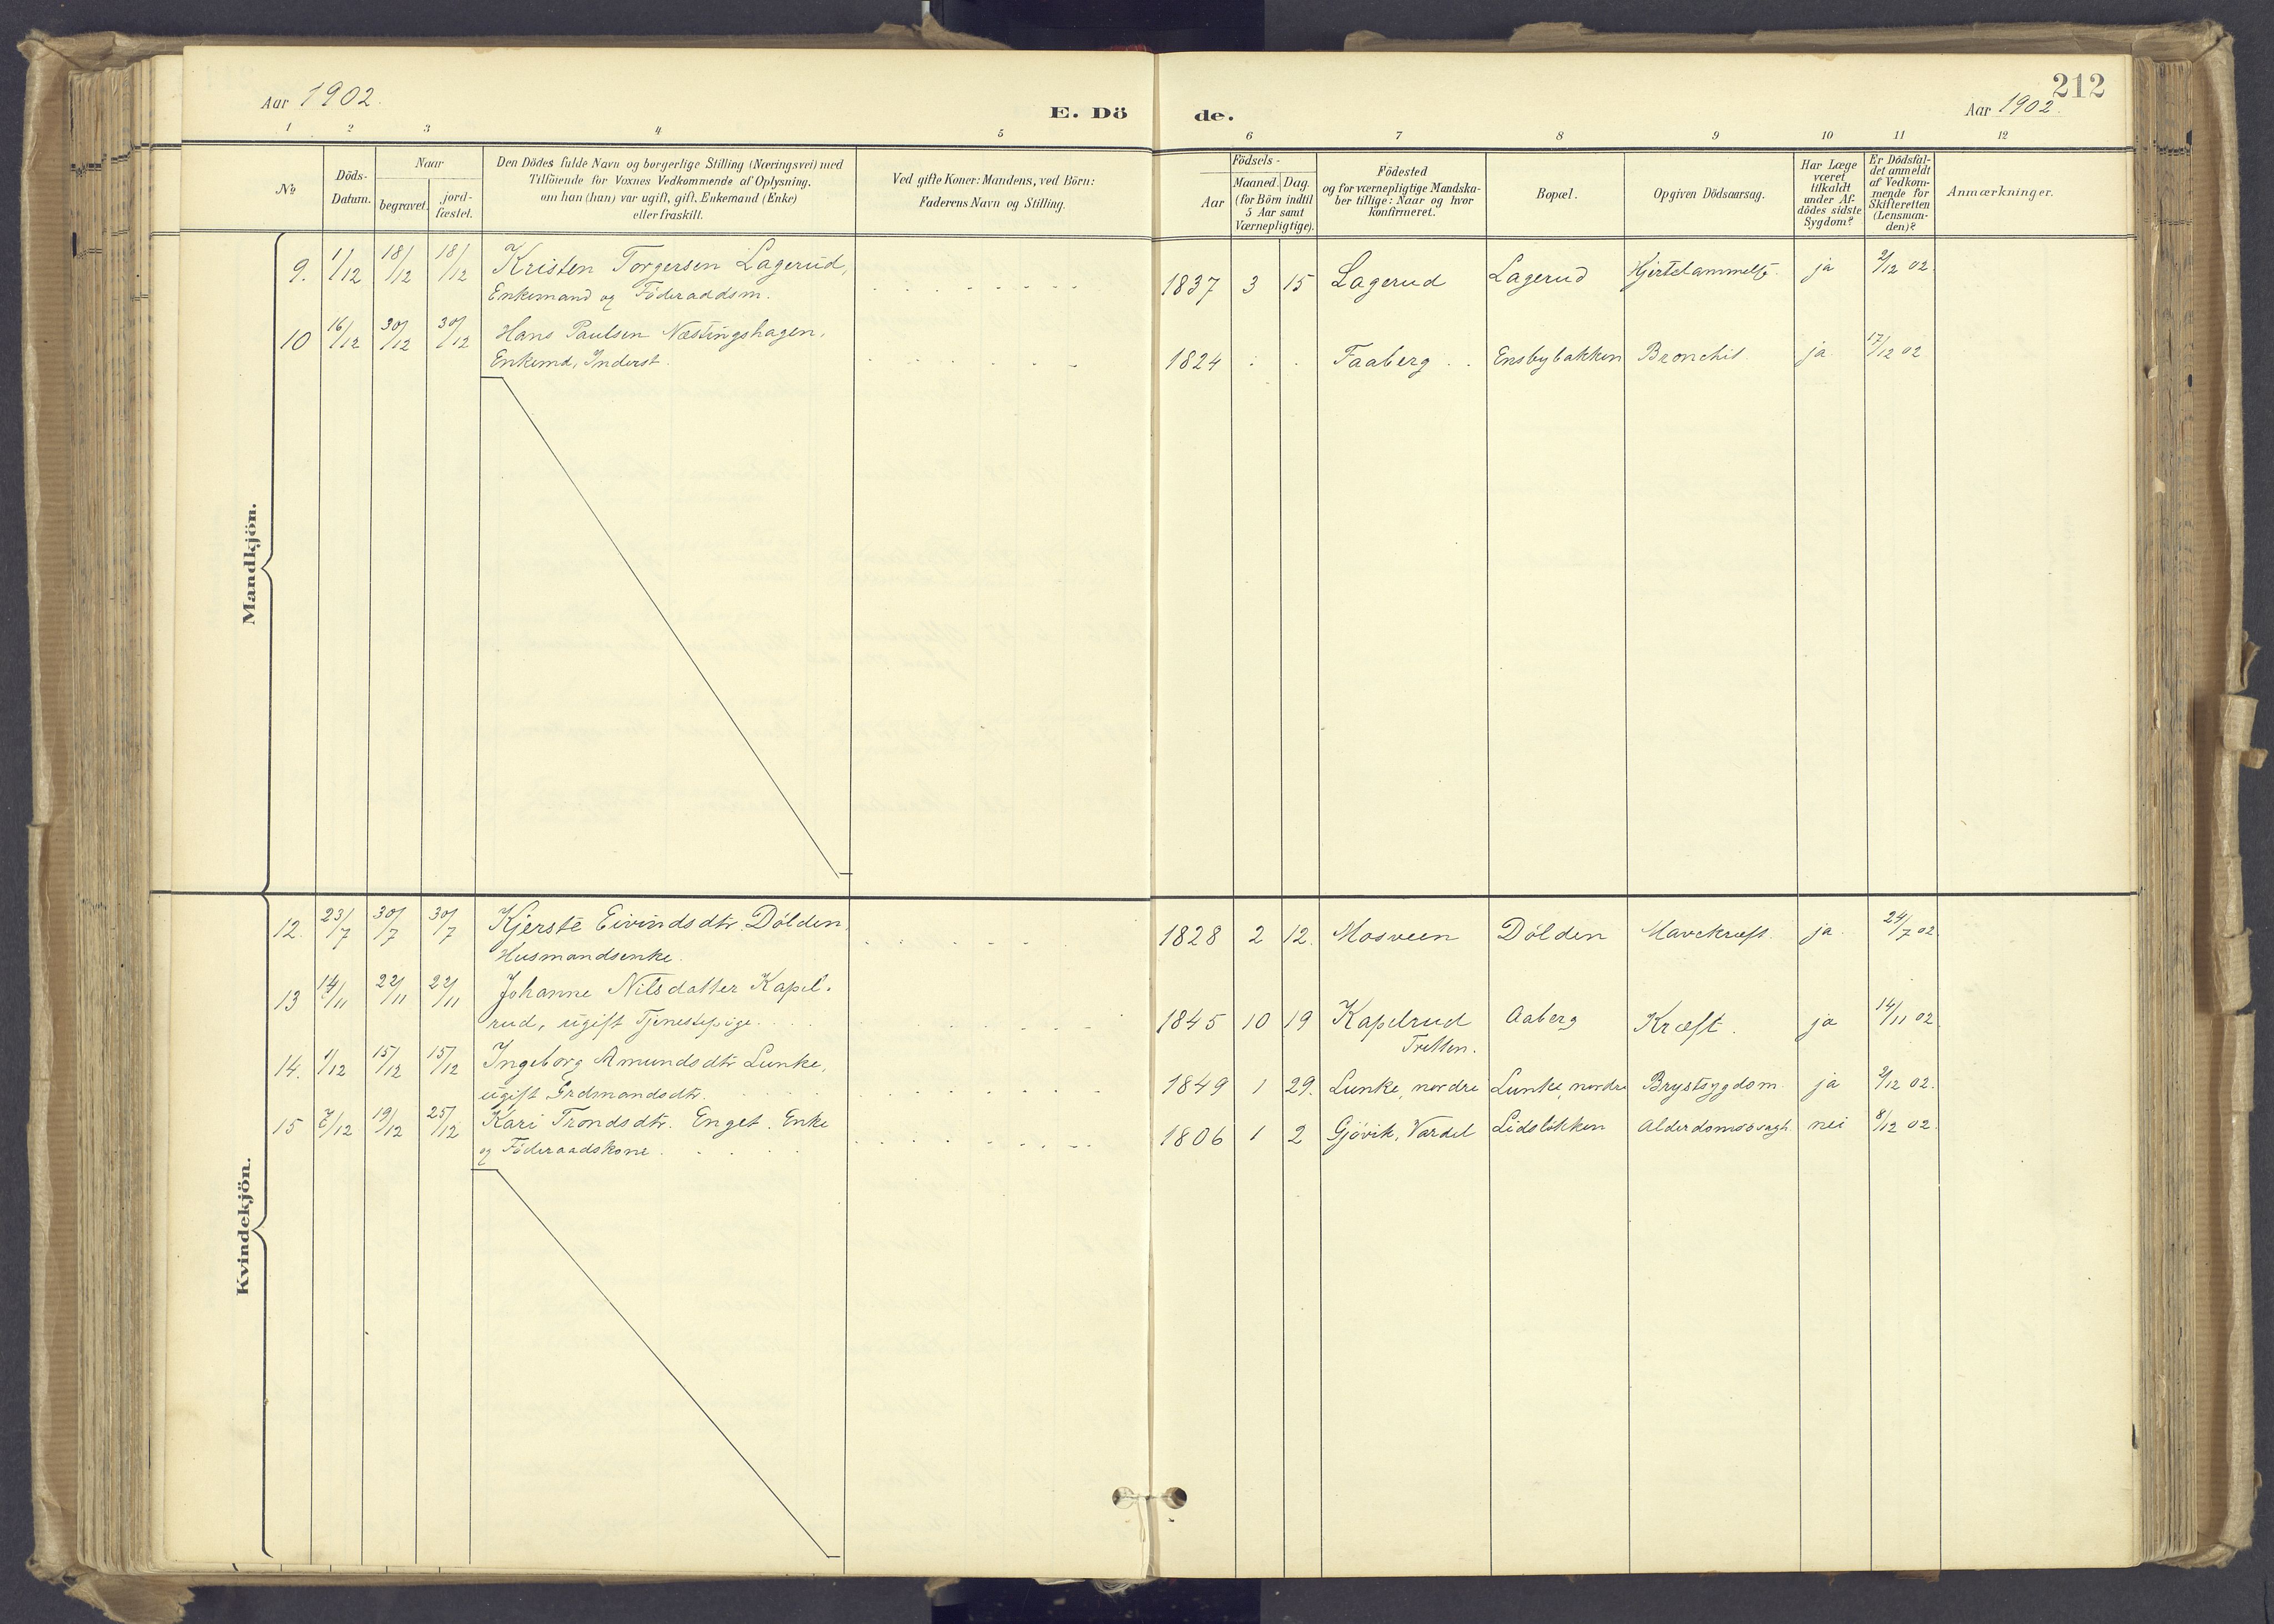 212
Aar 1902.
E. Dö
de.
Aar 1902.
1 2 3 4 5 6 7 8 9 10 11 12
№
Döds-
Datum.
Naar
begravet.
jord-
fæstet.
Den Dödes fulde Navn og borgerlige Stilling (Næringsvei) med
Tilföiende for Voxnes Vedkommende af Oplysning.
om han (hun) var ugift, gift, Enkemand (Enke)
eller fraskilt.
Ved gifte Koner: Mandens, ved Börn:
Faderens Navn og Stilling.
Födsels-
Aar
Maaned. Dag.
(for Börn indtil
5 Aar samt
Værnepligtige).
Födested
og for værnepligtige Mandska-
ber tillige: Naar og hvor
konfirmeret.
Bopæl.
Opgiven Dödsaarsag.
Har Læge
været
tilkaldt
under Af-
dödes sidste
Sygdom?
Er Dödsfal-
det anmeldt
af Vedkom-
mende for
Skifteretten
(Lensman-
den)?
Anmærkninger.
Mandkjön.
9. 1/12 18/12 18/12 Kristen Torgersen Lagerud,
Enkemand og Föderaadsm.
1837 3 15 Lagerud Lagerud ja 2/12 02.
10 16/12 30/12 30/12 Hans Paulsen Næstingshagen,
Enkemd, Inderst.
1824 Faaberg Ensbybakken Bronchit ja 17/12 02
Kvindekjön.
12. 23/7 30/7 30/7 Kjerste Eivindsdtr. Dölden,
Husmandsenke.
1828 2 12. Mosveen Dölden Mavekræft. ja 24/7 02.
13 14/11 22/11 22/11 Johanne Nilsdatter Kapel-
rud, ugift Tjenestepige.
1845 10 19 Kapelrud Aaberg Kræft. ja 14/11 02.
Tretten.
14. 1/12 15/12 15/12 Ingeborg Amundsdtr Lunke,
ugift Grdmandsdtr.
1849 1 29. Lunke, nordre Lunke, nordre Brystsygdom ja 2/12 02.
15 7/12 19/12 25/12 Kari Trondsdtr. Enget. Enke
og Föderaadskone.
1806 1 2 Gjövik, Vardal Lidslökken Alderdomssvagh. nei 8/12 02.